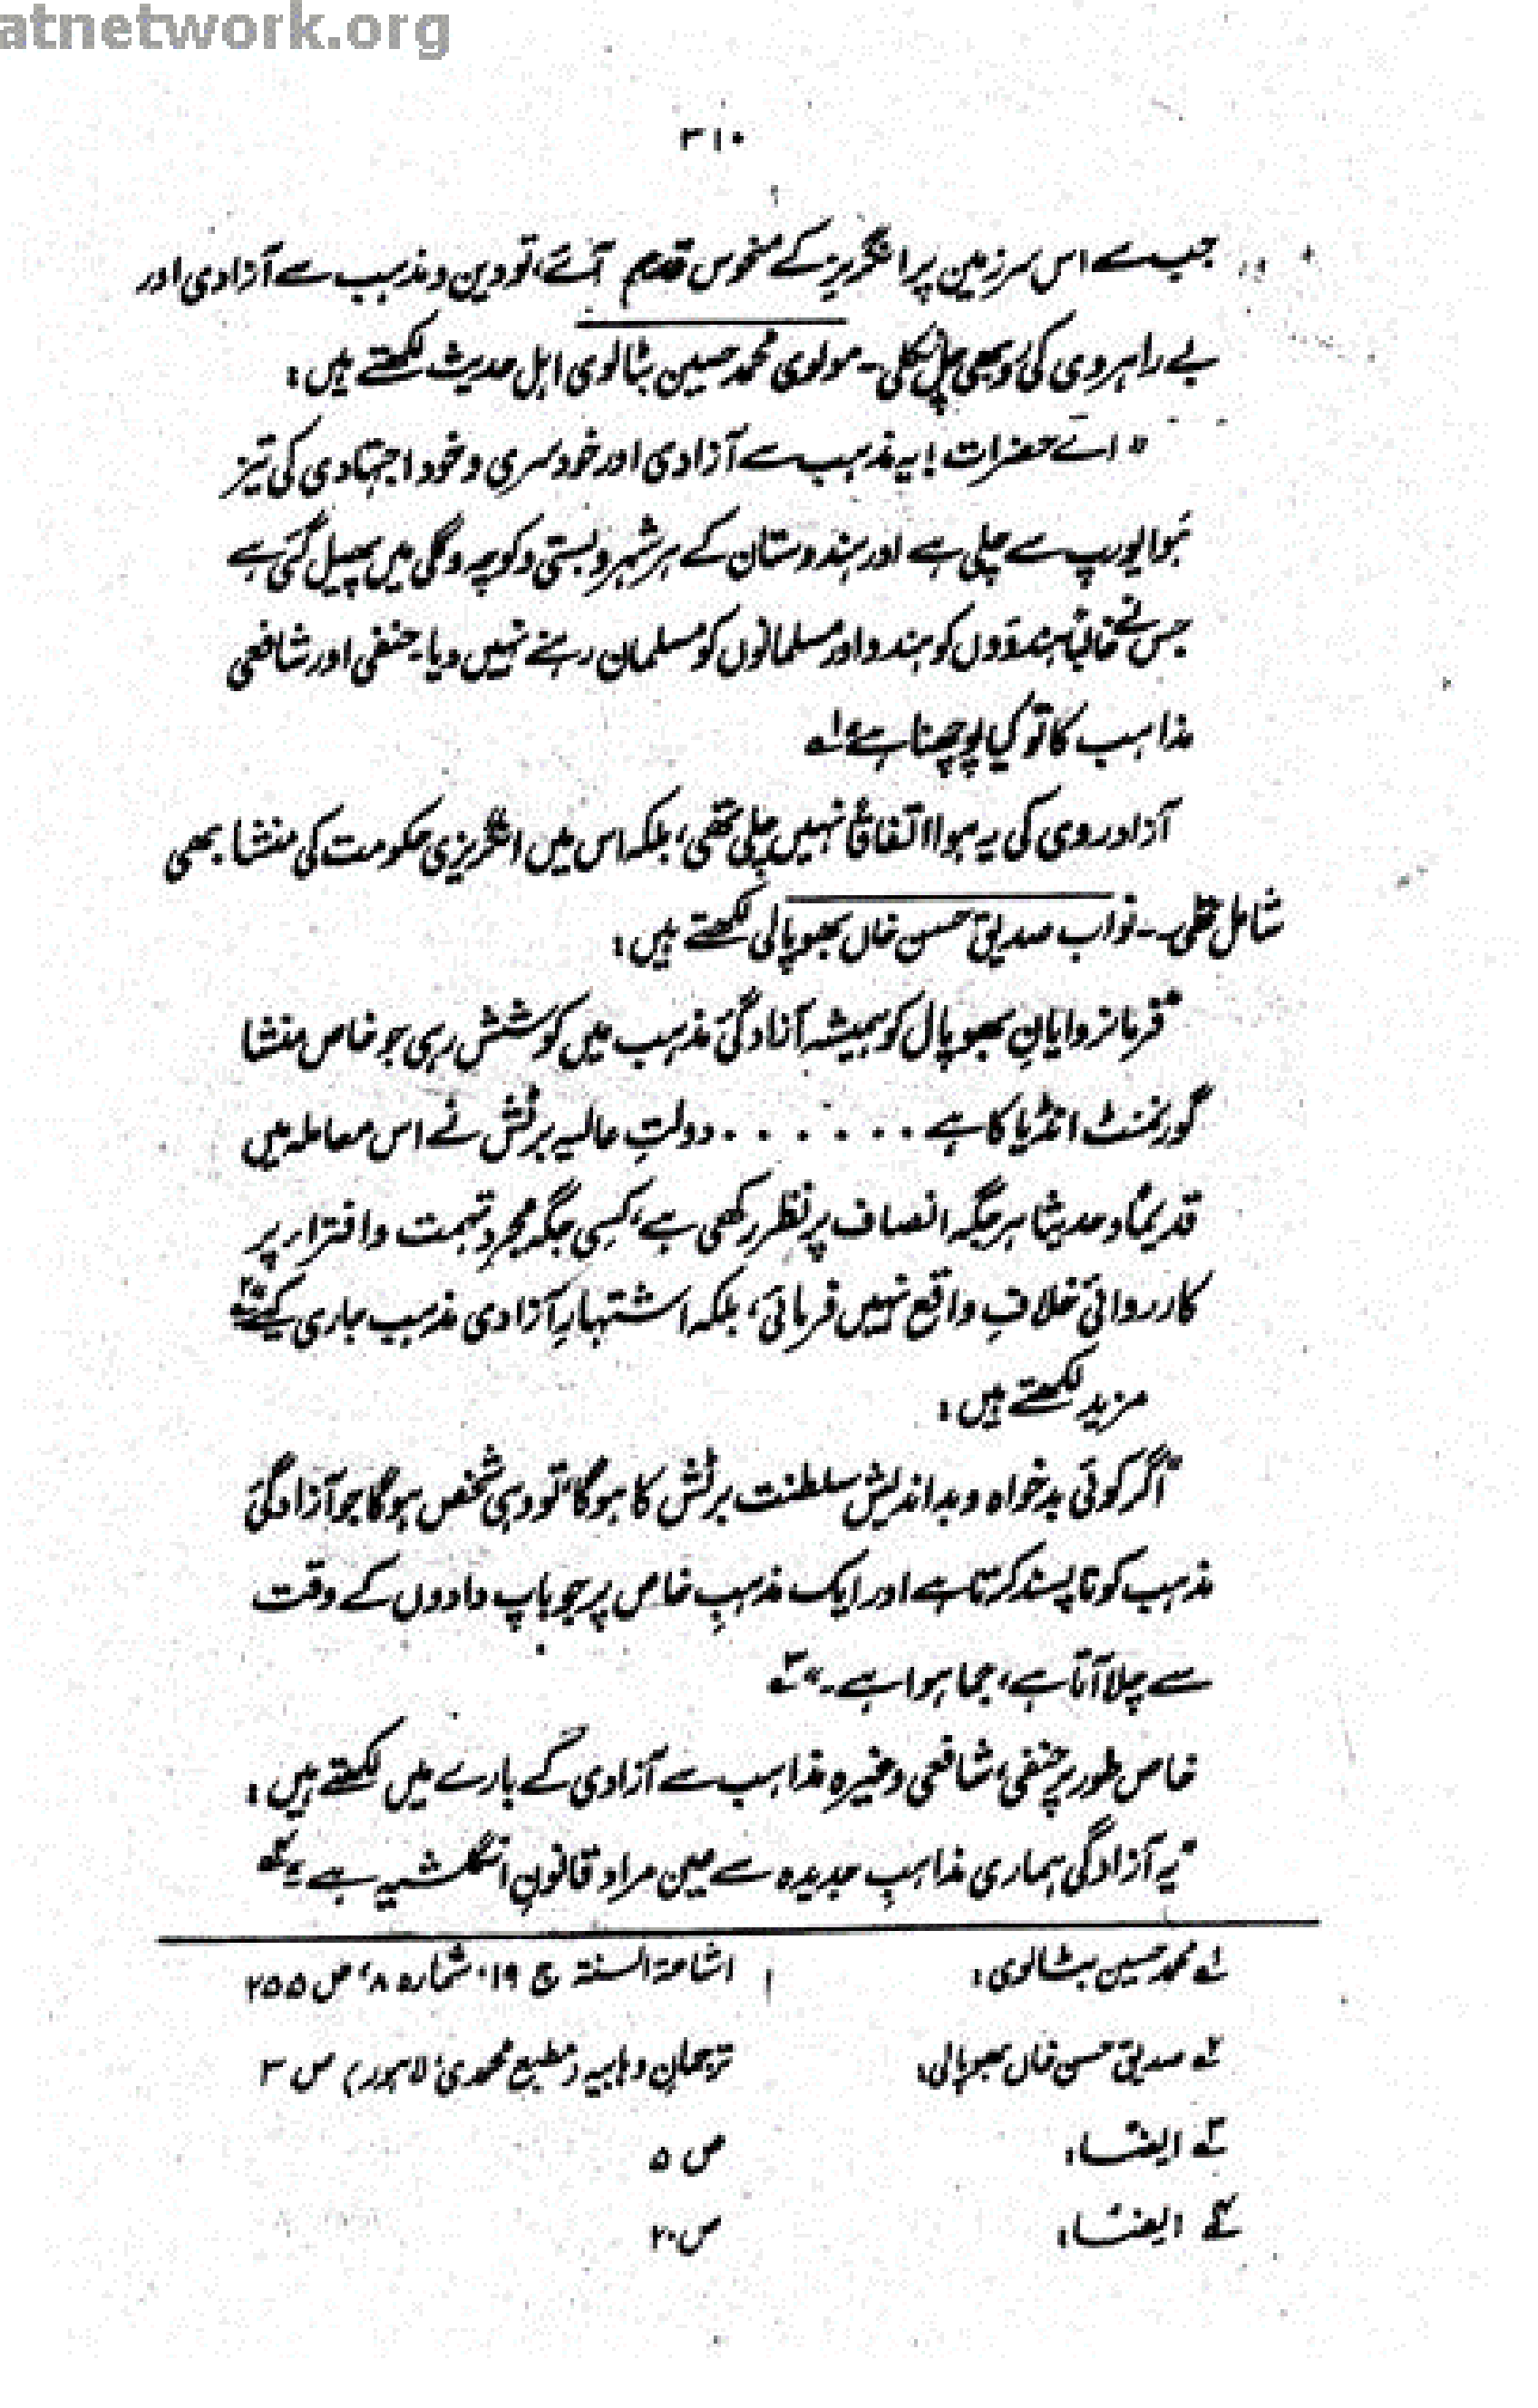 atnetwork.org
۳۱۰
جب سے اس سرزمین پر انگریز کے منحوس قدم آئے، تو دین و مذہب سے آزادی اور
بے راہروی کی رَو بھی چل نکلی۔ مولوی محمد حسین بٹالوی اہل حدیث لکھتے ہیں:
"اے حضرات! یہ مذہب سے آزادی اور خود سری و خود اجتہادی کی تیز
ہَوا یورپ سے چلی ہے اور ہندوستان کے ہر شہر و بستی و کوچہ و گلی میں پھیل گئی ہے
جس نے غالباً ہندوؤں کو ہندو اور مسلمانوں کو مسلمان رہنے نہیں دیا۔ حنفی اور شافعی
مذاہب کا تو کیا پوچھنا ہے" لہ
آزاد روی کی یہ ہوا اتفاقاً نہیں چلی تھی، بلکہ اس میں انگریزی حکومت کی منشا بھی
شامل تھی۔ نواب صدیق حسن خاں بھوپالی لکھتے ہیں:
"فرمانروایانِ بھوپال کو ہمیشہ آزادگیٔ مذہب میں کوشش رہی جو خاص منشا
گورنمنٹ انڈیا کا ہے ....... دولتِ عالیہ برٹش نے اس معاملہ میں
قدیماً و حدیثاً ہر جگہ انصاف پر نظر رکھی ہے، کسی جگہ مجرد تہمت و افترا پر
کارروائی خلافِ واقع نہیں فرمائی، بلکہ اشتہارِ آزادی مذہب جاری کیے" ۲ہ
مزید لکھتے ہیں:
"اگر کوئی بدخواہ و بداندیش سلطنت برٹش کا ہوگا، تو وہی شخص ہوگا جو آزادگیٔ
مذہب کو ناپسند کرتا ہے اور ایک مذہبِ خاص پر جو باپ دادوں کے وقت
سے چلا آتا ہے، جما ہوا ہے۔" ۳ہ
خاص طور پر حنفی، شافعی وغیرہ مذاہب سے آزادی کے بارے میں لکھتے ہیں:
"یہ آزادگی ہماری مذاہبِ جدیدہ سے عین مراد قانونِ انگلشیہ ہے" ۴ہ
لہ محمد حسین بٹالوی: اشاعۃ السنۃ ج ۱۹، شمارہ ۸، ص ۲۵۵
۲ہ صدیق حسن خاں بھوپالی: ترجمانِ وہابیہ (مطبع محمدی، لاہور) ص ۳
۳ہ ایضاً: ص ۵
۴ہ ایضاً: ص ۲۰